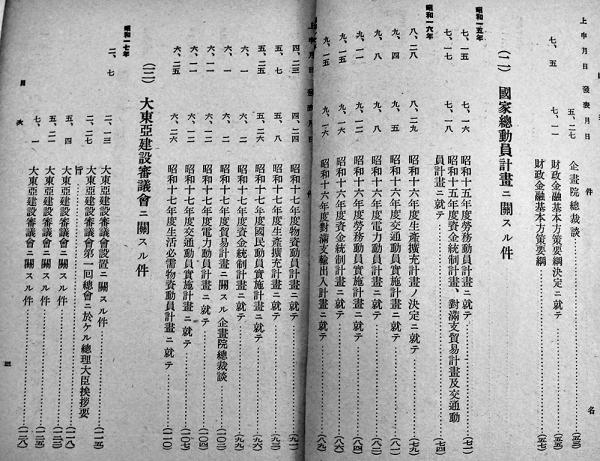 上申月日 發表月日 件 名
五、二七 企畫院總裁談
七、五 七、一一 財政金融基本方策要綱決定ニ就テ
財政金融基本方策要綱 (五七)
(二) 國家總動員計畫ニ關スル件
昭和一五年
七、一五 七、一六 昭和十五年度勞務動員計畫ニ就テ (七二)
七、一七 七、一八 昭和十五年度資金統制計畫、對滿支貿易計畫及交通動
員計畫ニ就テ (七四)
昭和一六年
八、二八 八、二九 昭和十六年度生產擴充計畫ノ決定ニ就テ (七九)
九、四 昭和十六年度交通動員實施計畫ニ就テ (八一)
九、八 昭和十六年度電力動員計畫ニ就テ (八二)
九、一一 九、一二 昭和十六年度勞務動員實施計畫ニ就テ
九、一五 九、一六 昭和十六年度資金統制計畫ニ就テ (八六)
九、一五 九、一六 昭和十六年度對滿支輸出入計畫ニ就テ (八九)
上申月日 發表月日 件
四、二三 四、二四 昭和十七年度物資動員計畫ニ就テ
五、七 五、八 昭和十七年度生產擴充計畫ニ就テ
五、二五 五、二六 昭和十七年度國民動員實施計畫ニ就テ (九六)
六、一 六、二 昭和十七年度資金統制計畫ニ就テ (九九)
六、一 六、二 昭和十七年度貿易計畫ニ關スル企畫院總裁談
六、一一 六、一二 昭和十七年度電力動員計畫ニ就テ (一〇四)
六、一一 六、一二 昭和十七年度交通動員實施計畫ニ就テ (一〇七)
六、二五 六、二六 昭和十七年度生活必需物資動員計畫ニ就テ (一一〇)
(三) 大東亞建設審議會ニ關スル件
昭和一七年
二、七 二、一三 大東亞建設審議會設置ニ關スル件 (一一五)
二、二七 大東亞建設審議會第一回總會ニ於ケル總理大臣挨拶要
旨
五、四 大東亞建設審議會ニ關スル件
五、二一 大東亞建設審議會ニ關スル件
七、一 大東亞建設審議會ニ關スル件 (一二八)
目次
三